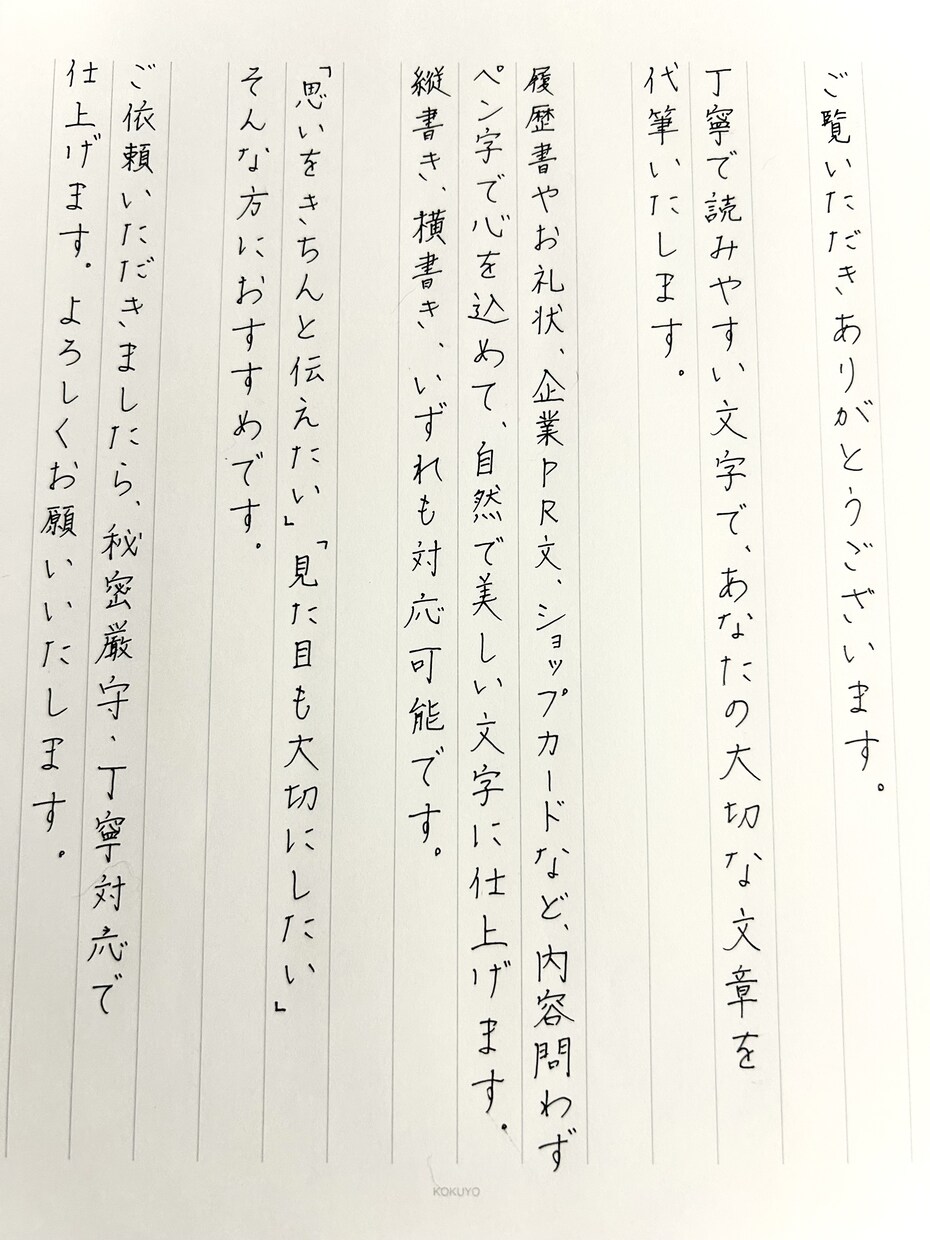 ご覧いただきありがとうございます。
丁寧で読みやすい文字で、あなたの大切な文章を
代筆いたします。
履歴書やお礼状、企業PR文、ショップカードなど、内容問わず
ペン字で心を込めて、自然で美しい文字に仕上げます。
縦書き、横書き、いずれも対応可能です。
「思いをきちんと伝えたい」「見た目も大切にしたい」
そんな方におすすめです。
ご依頼いただきましたら、秘密厳守、丁寧対応で
仕上げます。よろしくお願いいたします。
KOKUYO